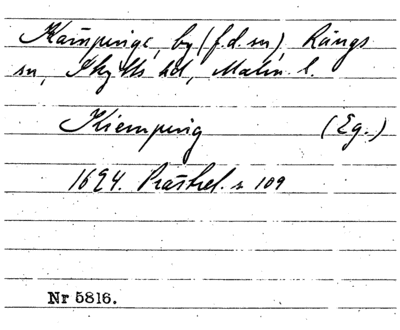 Kämpinge, by (f.d. sn), Rängs
sn, Skytts hd, Malm. l.
Kiemping (Eg.)
1624. Prästrel. s 109
Nr 5816.